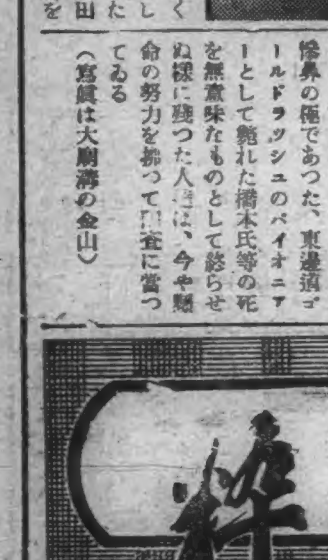 く
し
た
田
を
惨鼻の極であつた、東邊道ゴ
ールドラツシユのパイオニア
ーとして斃れた橋本氏等の死
を無意味なものとして終らせ
ぬ様に残つた人達は、今や懸
命の努力を拂つて調査に當つ
てゐる
(寫眞は大廟溝の金山)
粹